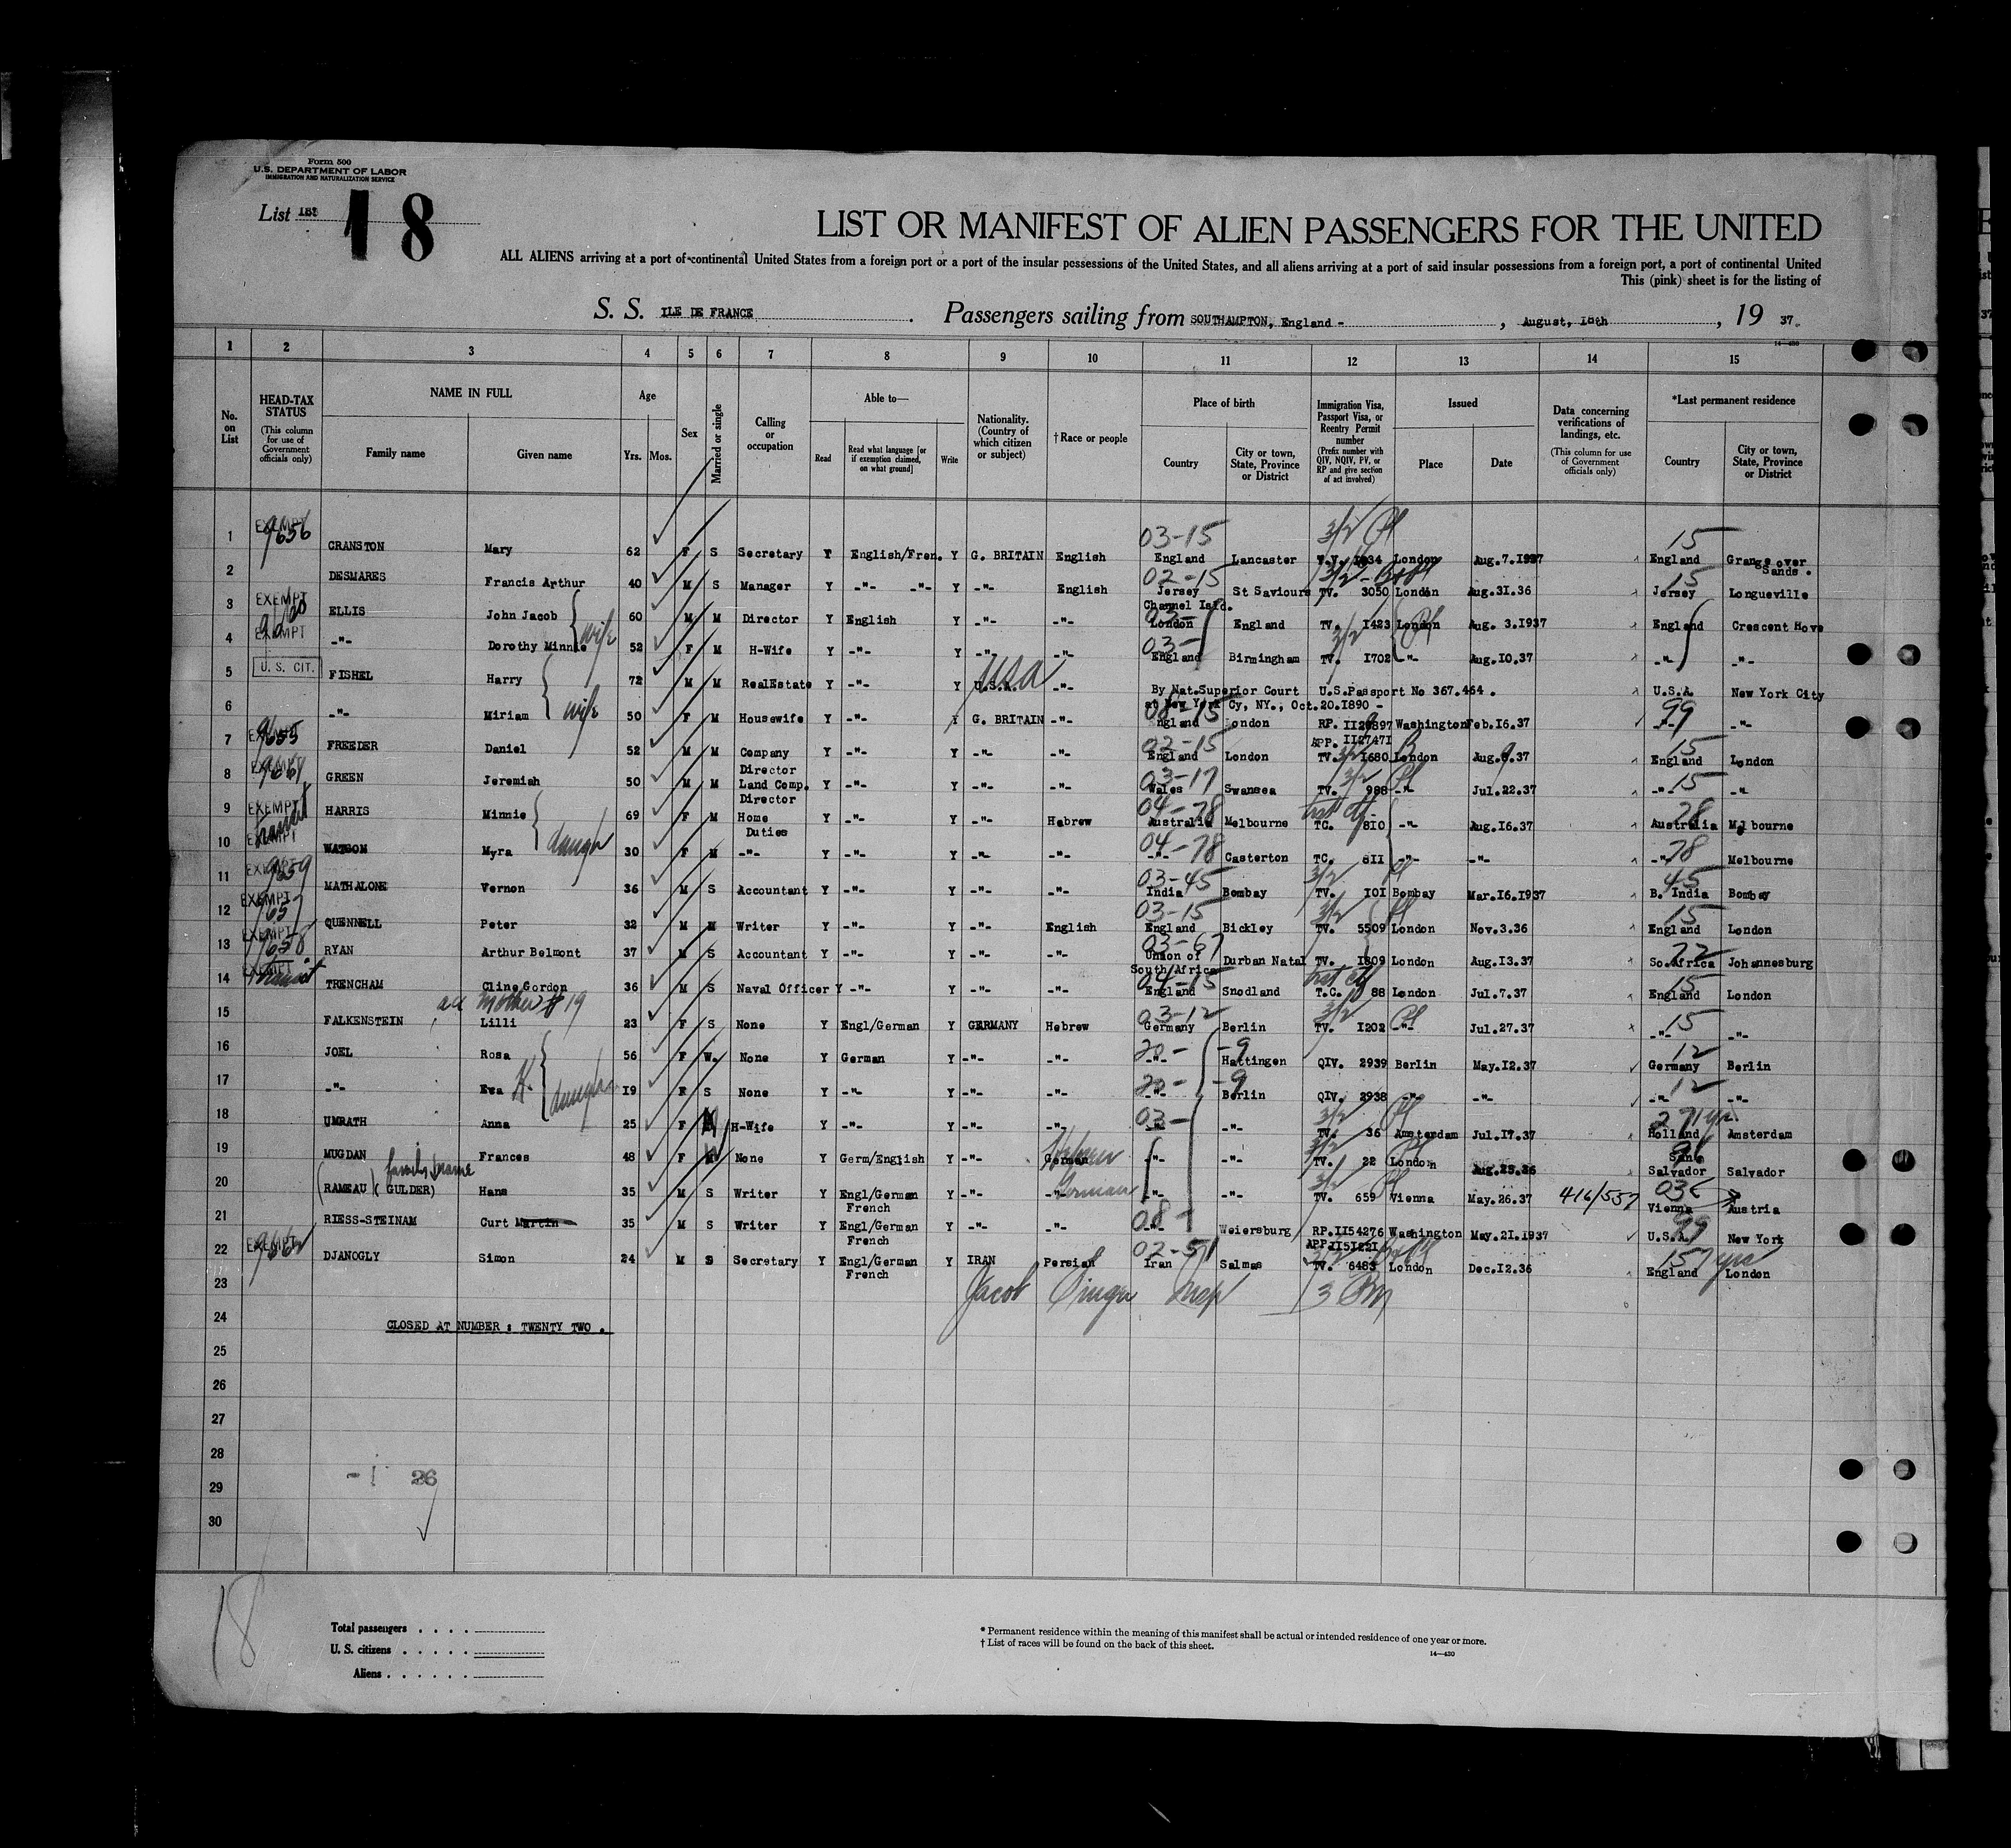 Form 500
U.S. DEPARTMENT OF LABOR
IMMIGRATION AND NATURALIZATION SERVICE
List 18
LIST OR MANIFEST OF ALIEN PASSENGERS FOR THE UNITED
ALL ALIENS arriving at a port of continental United States from a foreign port or a port of the insular possessions of the United States, and all aliens arriving at a port of said insular possessions from a foreign port, a port of continental United
This (pink) sheet is for the listing of
S. S. ILE DE FRANCE . Passengers sailing from SOUTHAMPTON, England - , August, 18th , 19 37.
14—430
1 2 3 4 5 6 7 8 9 10 11 12 13 14 15
No. on List
HEAD-TAX STATUS (This column for use of Government officials only)
NAME IN FULL
Family name Given name
Age
Yrs. Mos.
Sex
Married or single
Calling or occupation
Able to—
Read Read what language [or if exemption claimed, on what ground] Write
Nationality. (Country of which citizen or subject)
†Race or people
Place of birth
Country City or town, State, Province or District
Immigration Visa, Passport Visa, or Reentry Permit number (Prefix number with QIV, NQIV, PV, or RP and give section of act involved)
Issued
Place Date
Data concerning verifications of landings, etc. (This column for use of Government officials only)
*Last permanent residence
Country City or town, State, Province or District
1 EXEMPT 9656 CRANSTON Mary 62 F S Secretary Y English/Fren. Y G. BRITAIN English 03-15 England Lancaster 3/2 London Aug.7.1937 15 England Grange over Sands.
2 DESMARES Francis Arthur 40 M S Manager Y -"- -"- Y -"- English 02-15 Jersey Channel Isld. St Saviours 3/2 TV. 3050 London Aug.31.36 15 Jersey Longueville
3 EXEMPT ELLIS John Jacob 60 M M Director Y English Y -"- -"- London England TV. 1423 London Aug. 3.1937 England Crescent Hove
4 EXEMPT -"- Dorothy Minnie wife 52 F M H-Wife Y -"- Y -"- -"- 03- England Birmingham 3/2 TV. 1702 -"- Aug.10.37 -"- -"-
5 U. S. CIT. FISHEL Harry 72 M M RealEstate Y -"- Y U.S.A. USA -"- By Nat.Superior Court U.S.Passport No 367.464. U.S.A. New York City
at New York Cy, NY., Oct.20.1890 -
6 -"- Miriam wife 50 F M Housewife Y -"- Y G. BRITAIN -"- 08-15 England London RP. Washington Feb.16.37 99 -"- -"-
APP. 1127471
7 EXEMPT 9655 FREEDER Daniel 52 M M Company Director Y -"- Y -"- -"- 02-15 England London TV. 3/2 1680 London Aug.9.37 15 England London
8 EXEMPT GREEN Jeremiah 50 M M Land Comp. Director Y -"- Y -"- -"- 03-17 Wales Swansea 3/2 TV. 988 -"- Jul.22.37 15 -"- -"-
9 EXEMPT transit HARRIS Minnie 69 F M Home Duties Y -"- Y -"- Hebrew 04-78 Australia Melbourne TC. 810 -"- Aug.16.37 78 Australia Melbourne
10 EXEMPT WATSON Myra daugh 30 F M -"- Y -"- Y -"- -"- 04-78 -"- Casterton TC. 811 -"- -"- 78 -"- Melbourne
11 EXEMPT 9659 MATHALONE Vernon 36 M S Accountant Y -"- Y -"- -"- 03-45 India Bombay 3/2 TV. 101 Bombay Mar.16.1937 45 B. India Bombay
12 EXEMPT 9657 QUENNELL Peter 32 M M Writer Y -"- Y -"- English 03-15 England Bickley 3/2 TV. 5509 London Nov.3.36 15 England London
13 EXEMPT 9658 RYAN Arthur Belmont 37 M S Accountant Y -"- Y -"- -"- 03-67 Union of South Africa Durban Natal TV. 1809 London Aug.13.37 So.Africa Johannesburg
14 EXEMPT transit TRENCHAM Cline Gordon 36 M S Naval Officer Y -"- Y -"- -"- 04-15 England Snodland T.C. 88 London Jul.7.37 15 England London
mother # 19
15 FALKENSTEIN Lilli 23 F S None Y Engl/German Y GERMANY Hebrew 03-12 Germany Berlin 3/2 TV. 1202 -"- Jul.27.37 15 -"- -"-
16 JOEL Rosa 56 F W. None Y German Y -"- -"- 20- -"- -9 Hattingen QIV. 2939 Berlin May.12.37 12 Germany Berlin
17 -"- Ewa H. daughter 19 F S None Y -"- Y -"- -"- 20- -"- -9 Berlin QIV. 2938 -"- -"- 12 -"- -"-
18 UMRATH Anna 25 F H-Wife Y -"- Y -"- -"- 03- -"- -"- 3/2 TV. 36 Amsterdam Jul.17.37 Holland Amsterdam
19 MUGDAN Frances 48 F None Y Germ/English Y -"- German Hebrew -"- -"- 3/2 TV. 22 London Aug.25.26 Salvador Salvador
family name
20 (RAMEAU) ( GULDER) Hans 35 M S Writer Y Engl/German French Y -"- -"- German -"- -"- 3/2 TV. 659 Vienna May.26.37 416/537 Vienna Austria
21 RIESS-STEINAM Curt Martin 35 M S Writer Y Engl/German French Y -"- -"- 08- Weiersburg RP.1154276 Washington May.21.1937 99 U.S.A. New York
APP.1151221
22 EXEMPT DJANOGLY Simon 24 M S Secretary Y Engl/German French Y IRAN Persian 02-51 Iran Salmas TV. 6483 London Dec.12.36 15 7 yrs England London
23 Jacob Insp
24 CLOSED AT NUMBER : TWENTY TWO .
25
26
27
28
- 1 26
29
30
18
Total passengers . . . .
U. S. citizens . . . . .
Aliens . . . . . .
* Permanent residence within the meaning of this manifest shall be actual or intended residence of one year or more.
† List of races will be found on the back of this sheet.
14—430